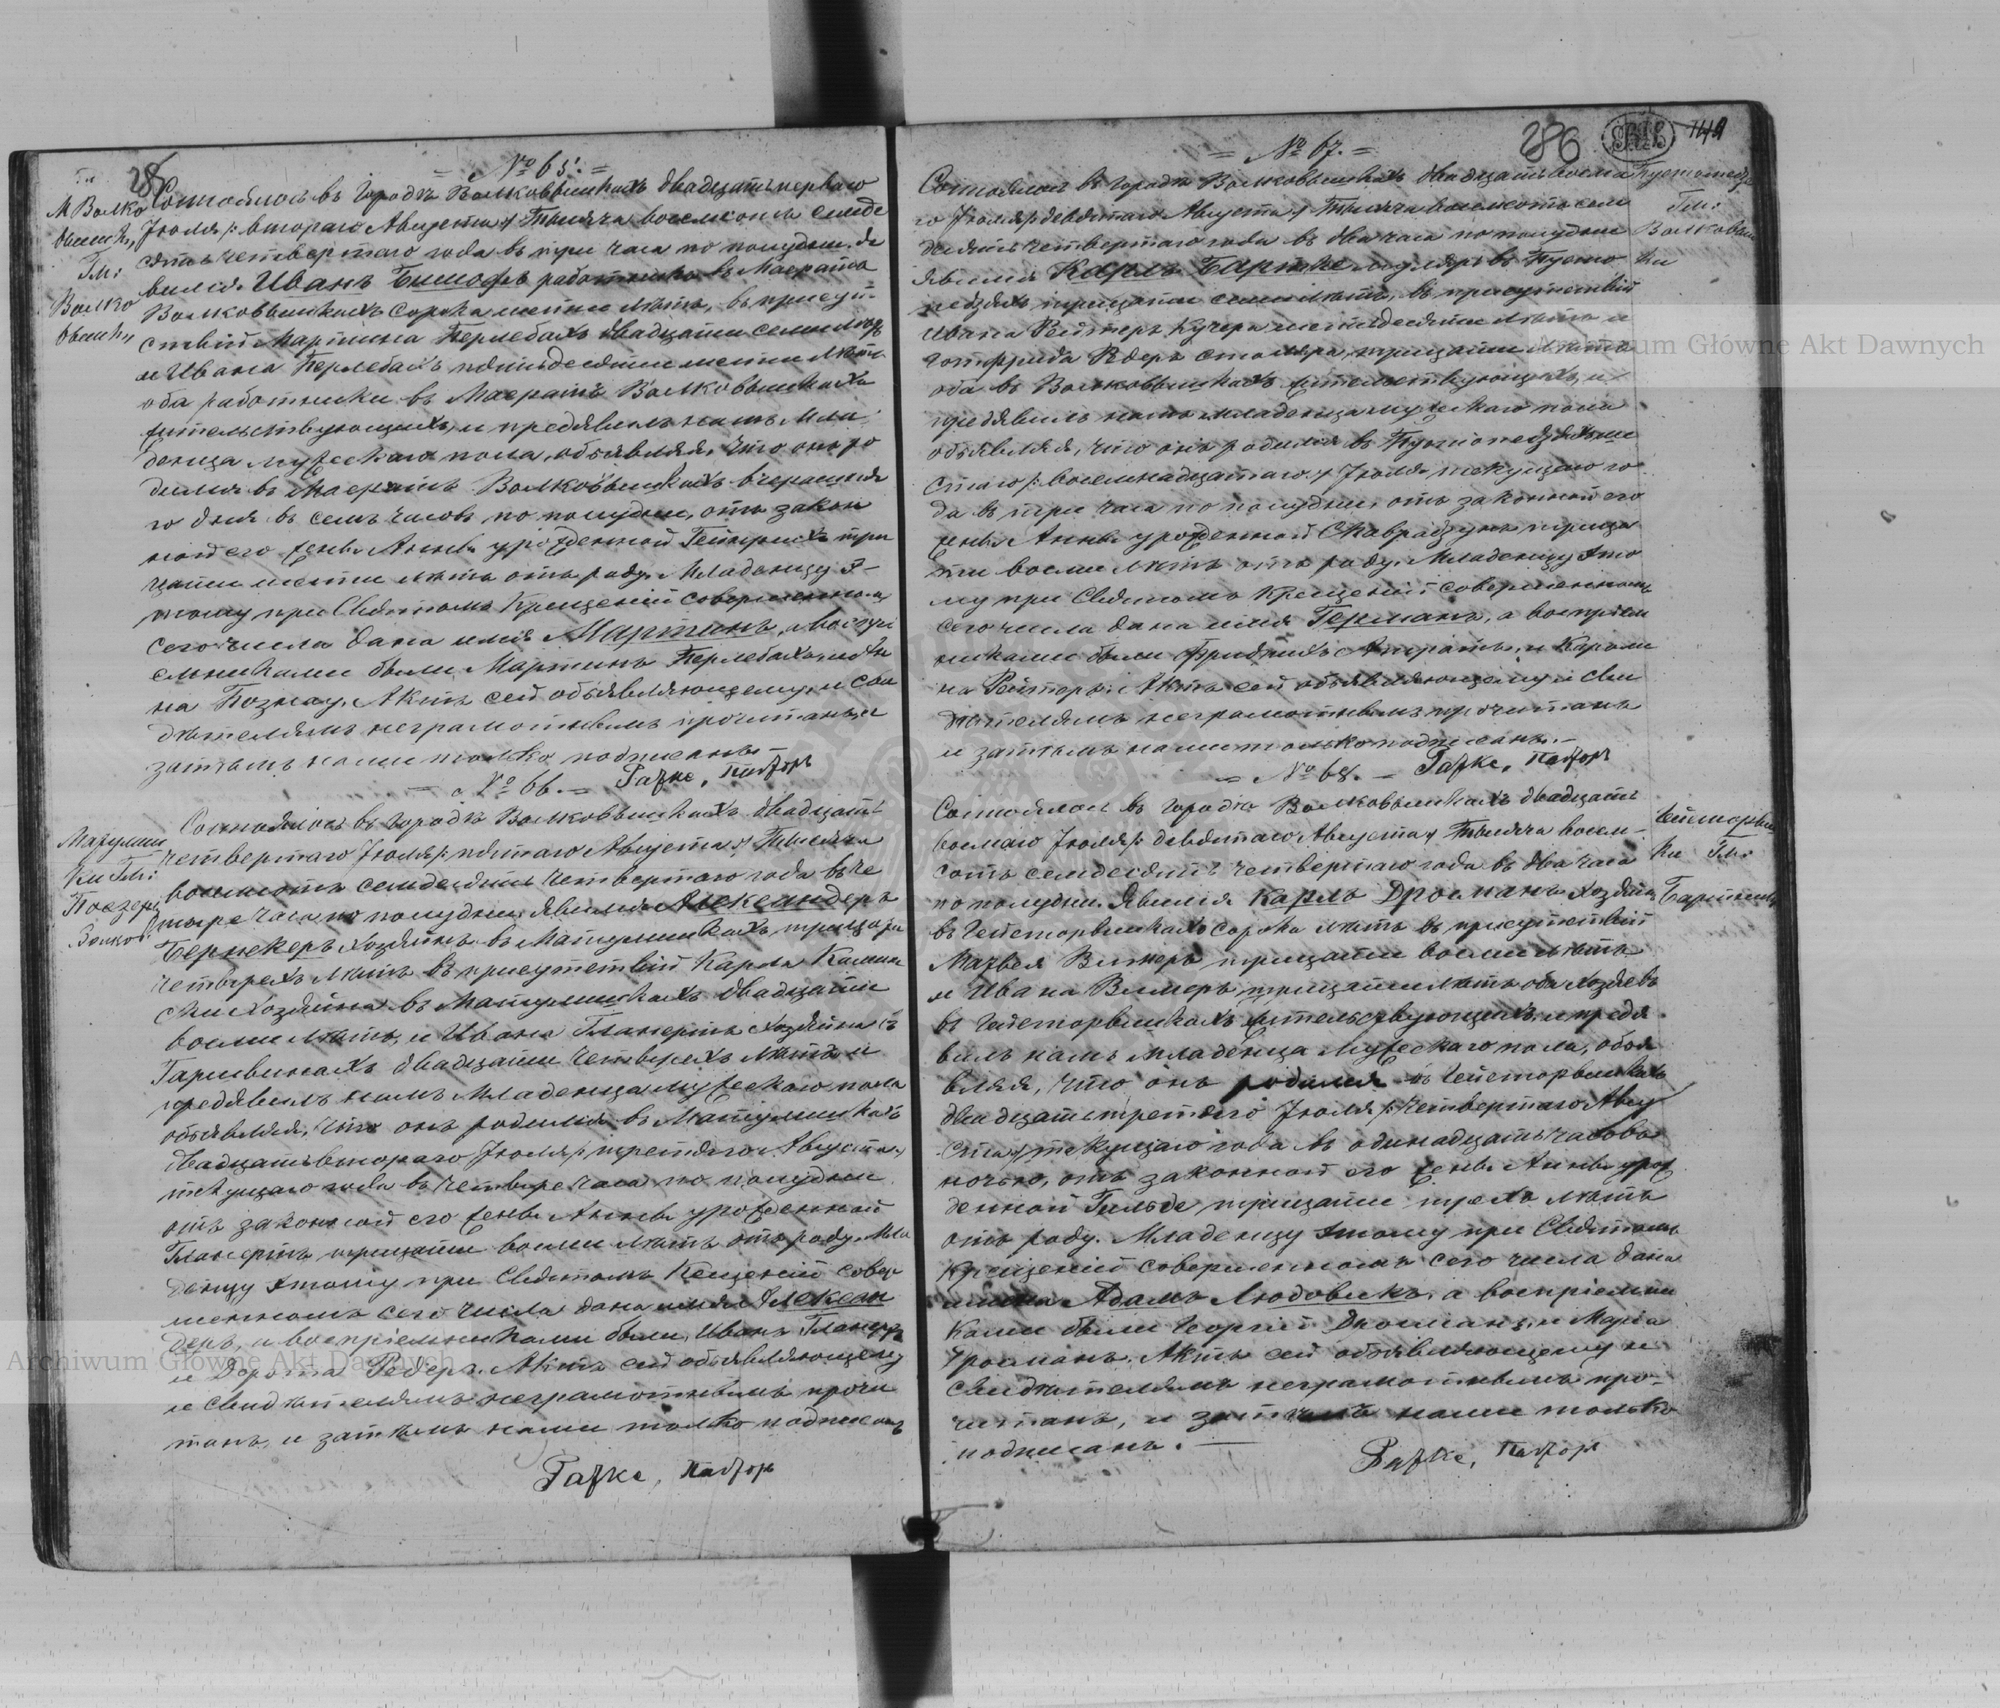 286
= № 65. =
М Волко
вышки
Гм:
Волко
вышки
Состоялось въ городѣ Волковышкахъ двадцать перваго
Июля /: втораго Августа :/ Тысяча восемсотъ семде
сятъ четвертаго года въ три часа по полудни. Я
вился Иванъ Бишофъ работникъ въ Маератѣ
Волковышкахъ сорока шести лѣтъ, въ присут
ствіи Мартина Перлебахъ двадцати семи лѣтъ
и Ивана Перлебахъ пятьдесяти шести лѣтъ
оба работники въ Маератѣ Волковышкахъ
жительствующихъ, и предявилъ намъ мла
денца мужескаго пола, объявляя, что онъ ро
дился въ Маератѣ Волковышкахъ вчерашня
го дня въ семь часовъ по полудни, отъ закон
ной его жены Анны урожденной Гейнрихъ три
цати шести лѣтъ отъ роду. Младенцу э-
тому при Святомъ Крещеніи совершенномъ
сего числа дано имя Мартинъ, а воспрі
емниками были Мартинъ Перлебахъ, и
на Познау. Актъ сей объявляющему и сви
дѣтелямъ неграмотнымъ прочитанъ, и
затѣмъ нами только подписанъ.—
= № 66. = Гафке, Пасторъ
Матулиш
ки Гм:
Состоялось въ городѣ Волковышкахъ двадцать
четвертаго Июля /: пятаго Августа :/ Тысяча
восемсотъ семдесятъ четвертаго года въ че
тыре часа по полудни. Явился Александеръ
Бернекеръ хозяинъ въ Матулишкахъ, трицати
четырехъ лѣтъ въ присутствіи Карла
хозяина въ Матулишкахъ двадцати
восми лѣтъ, и Ивана Гланертъ хозяина въ
двадцати четырехъ лѣтъ и
предявилъ намъ младенца мужескаго пола
объявляя, что онъ родился въ Матулишкахъ
двадцать втораго Июля /: третяго Августа :/
текущаго года въ четыре часа по полудни
отъ законной его жены Анны урожденной
Гланертъ трицати восми лѣтъ отъ роду. Мла
денцу этому при Святомъ Крещеніи совер
шенномъ сего числа дано имя Алексан
деръ, а воспріемниками были, Иванъ Гланертъ
и Дорота Редеръ. Актъ сей объявляющему
и свидѣтелямъ неграмотнымъ прочи
танъ, и затѣмъ нами только подписанъ
Гафке, Пасторъ
286 149
= № 67. =
Гм:
Волковыш
ки
Состоялось въ городѣ Волковышкахъ двадцать восма
го Июля /: девятаго Августа :/ Тысяча восемсотъ сем
десятъ четвертаго года въ два часа по полудни
Явился Карлъ Бартке муляръ въ Пусто
педзяхъ трицати семи лѣтъ, въ присутствіи
Ивана Рейтеръ кучера шестидесяти лѣтъ и
Готфрида Редеръ столяра, трицати лѣтъ
оба въ Волковышкахъ жительствующихъ, и
предявилъ намъ младенца мужескаго пола
объявляя, что онъ родился въ Пустопедзяхъ ше
стаго /: восемнадцатаго :/ Июля текущаго го
да въ три часа по полудни, отъ законной его
жены Анны урожденной трица
ти восми лѣтъ отъ роду. Младенцу это
му при Святомъ Крещеніи совершенномъ
сего числа дано имя Германъ, а воспріем
никами были Фридрихъ и Кароли
на Рейтеръ. Актъ сей объявляющему и сви
дѣтелямъ неграмотнымъ прочитанъ
и затѣмъ нами только подписанъ.—
= № 68. = Гафке, Пасторъ
ки Гм:
Состоялось въ городѣ Волковышкахъ двадцать
восмаго Июля /: девятаго Августа :/ Тысяча восем-
сотъ семдесятъ четвертаго года въ два часа
по полудни. Явился Карлъ Дросманъ хозяинъ
въ сорока лѣтъ въ присутствіи
Матвея Вимеръ трицати восми лѣтъ
и Ивана Вимеръ, трицати лѣтъ оба хозяевъ
въ жительствующихъ, и предя
вилъ намъ младенца мужескаго пола, объя
вляя, что онъ родился въ
двадцать третяго Июля /: четвертаго Авгу
ста :/ текущаго года въ одинадцать часовъ
ночью, отъ законной его жены Анны урож
денной Гильде трицати трехъ лѣтъ
отъ роду. Младенцу этому при Святомъ
Крещеніи совершенномъ сего числа дано
имена Адамъ Людовикъ, а воспріемни
ками были Георгій Дросманъ, и Марія
Дросманъ. Актъ сей объявляющему и
свидѣтелямъ неграмотнымъ про-
читанъ, и затѣмъ нами только
подписанъ. —
Гафке, Пасторъ
Archiwum Główne Akt Dawnych
Archiwum Główne Akt Dawnych